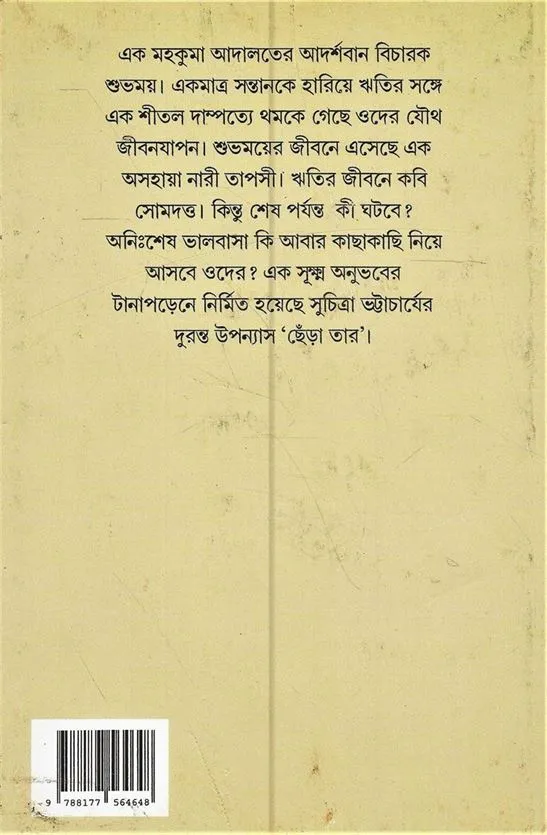 এক মহকুমা আদালতের আদর্শবান বিচারক
শুভময়। একমাত্র সন্তানকে হারিয়ে ঋতির সঙ্গে
এক শীতল দাম্পত্যে থমকে গেছে ওদের যৌথ
জীবনযাপন। শুভময়ের জীবনে এসেছে এক
অসহায়া নারী তাপসী। ঋতির জীবনে কবি
সোমদত্ত। কিন্তু শেষ পর্যন্ত কী ঘটবে?
অনিঃশেষ ভালবাসা কি আবার কাছাকাছি নিয়ে
আসবে ওদের? এক সূক্ষ্ম অনুভবের
টানাপড়েনে নির্মিত হয়েছে সুচিত্রা ভট্টাচার্যের
দুরন্ত উপন্যাস ‘ছেঁড়া তার’।
9 788177 564648